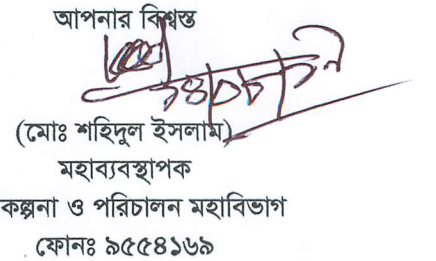 আপনার বিশ্বস্ত
(মোঃ শহিদুল ইসলাম)
মহাব্যবস্থাপক
কল্পনা ও পরিচালন মহাবিভাগ
ফোনঃ ৯৫৫৪১৬৯